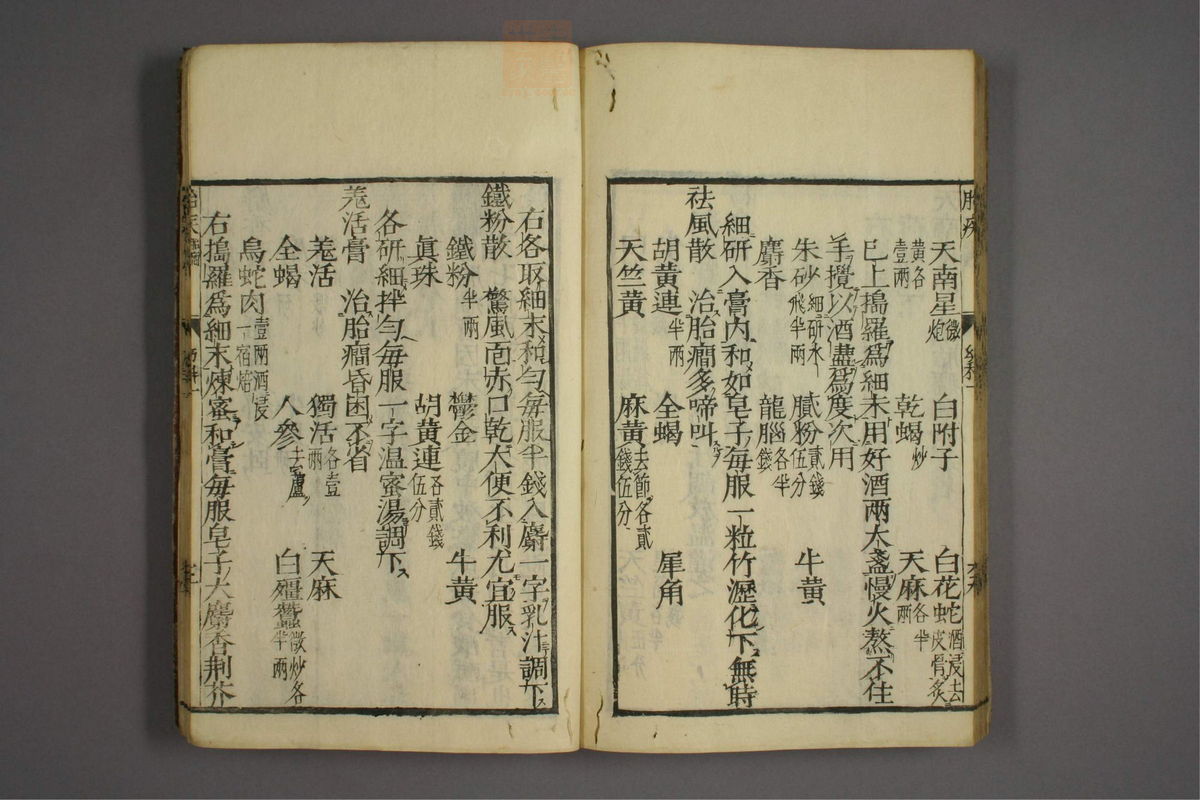 天南星微炮 白附子 白花蛇酒浸去皮骨炙
黄各壹兩 乾蝎炒 天麻各半兩
已上搗羅爲細末用好酒兩大盞慢火熬不住
手攪以酒盡爲度次用
朱砂細研水飛半兩 膩粉貳錢伍分 牛黄
麝香 龍腦各半錢
細研入膏内和如皂子每服一粒竹瀝化下無時
祛風散 治胎癎多啼叫
胡黄連半兩 全蝎 犀角
天竺黄 麻黄去節各貳錢伍分
右各取細末和勻每服半錢入麝一字乳汁調下
鐵粉散 驚風面赤口乾大便不利尤宜服
鐵粉半兩 鬱金 牛黄
眞珠 胡黄連各貳錢伍分
各研細拌勻每服一字温蜜湯調下
羗活膏 治胎癎昏困不省
羗活 獨活各壹兩 天麻
全蝎 人參去蘆 白殭蠶微炒各半兩
烏蛇肉壹兩酒浸一宿焙
右搗羅爲細末煉蜜和膏每服皂子大麝香荆芥